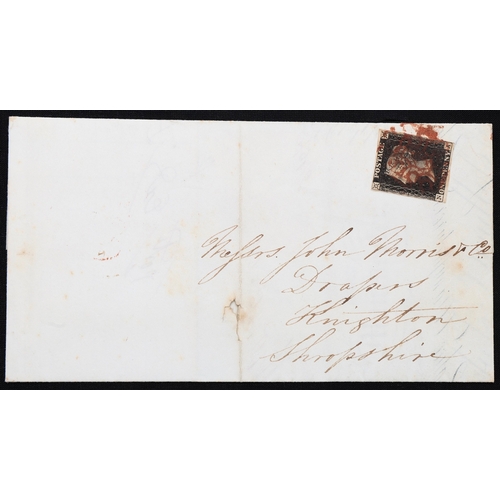 POSTAGE
ONE PENNY
Messrs. John Morris & Co
Drapers
Knighton
Shropshire